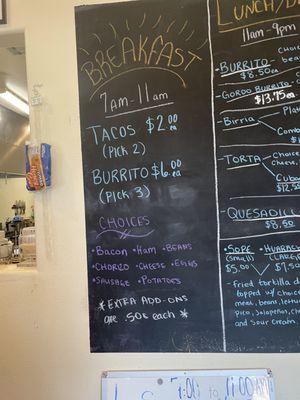 BREAKFAST
7am-11am
TACOS $2.00 ea
(PICK 2)
BURRITO $6.00 ea
(PICK 3)
CHOICES
• Bacon • Ham • BEANS
• CHORIZO • CHEESE • EGGS
• SAUSAGE • POTATOES
* EXTRA ADD-ONS
are .50¢ each *
LUNCH/D
11am-9pm
- BURRITO
$8.50 ea
- GORDO BURRITO
$13.75 ea
- Birria
- TORTA
$12.50
- QUESADILL
$8.50
• SOPE
(small)
$5.00
• HUARA
(LARGE
$7.50
- fried tortilla
topped w/ choic
meat, beans, lett
pico, jalapeños, ch
and sour cream
7:00 to 11:00 AM